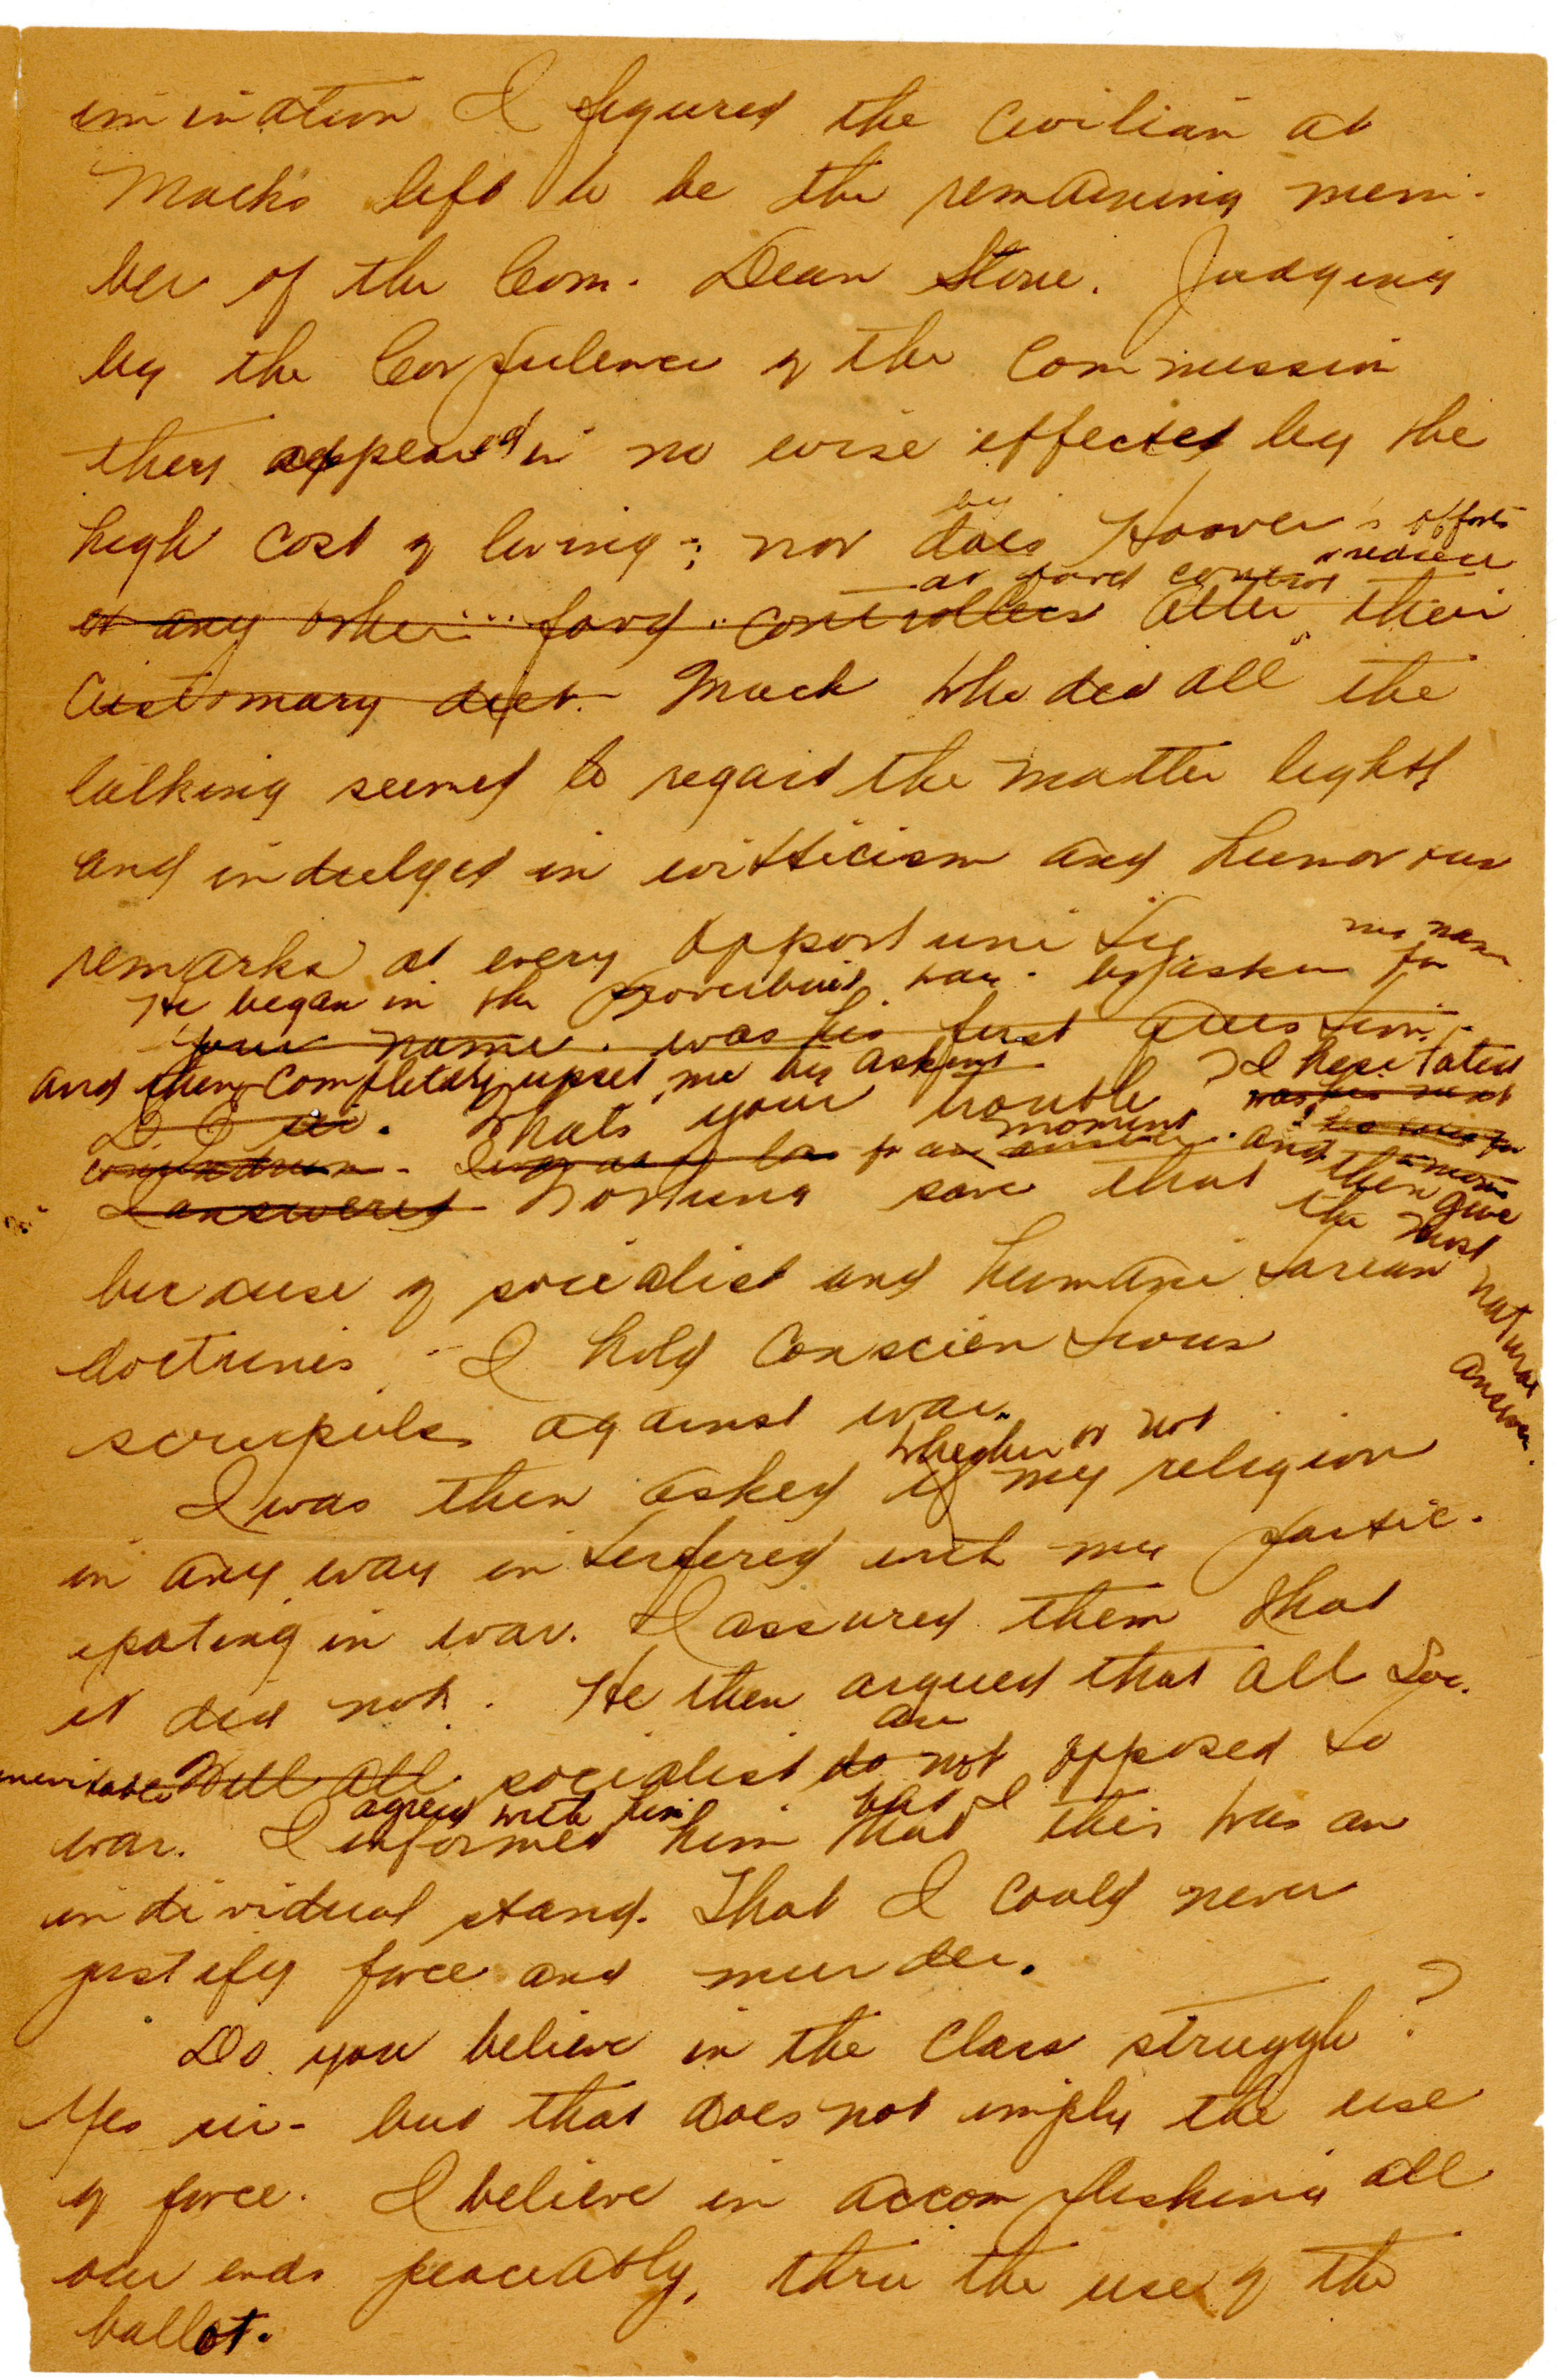 imination I figured the civilian at
Mack's left to be the remaining mem-
ber of the Com. Dean Stone. Judging
by the Corpulence of the Commission
they appeared in no wise effected by the
high cost of living; nor does by Hoover's efforts
or any other food controllers as food control alter their
Customary diet. Mack who did all the
talking seemed to regard the matter lightly
and indulged in witticism and humorous
remarks at every opportunity
He began in the proverbial way by asking for my name
Your name. was his first question.
and then completely upset me by asking
What's your trouble I hesitated
conundrum. moment and then gave the most natural answer.
I answered Nothing save that
because of socialist and humanitarian
doctrines - I hold Conscientious
scruples against war.
I was then asked if whether or not my religion
in any way interfered with my partic-
ipating in war. I assured them that
it did not. He then argued that all Soc.
Well all socialist do not are opposed to
war. I informed agreed with him him that but this was an
individual stand. That I could never
justify force and murder.
Do you believe in the Class struggle?
Yes sir - but that does not imply the use
of force. I believe in accomplishing all
our ends peaceably, thru the use of the
ballot.